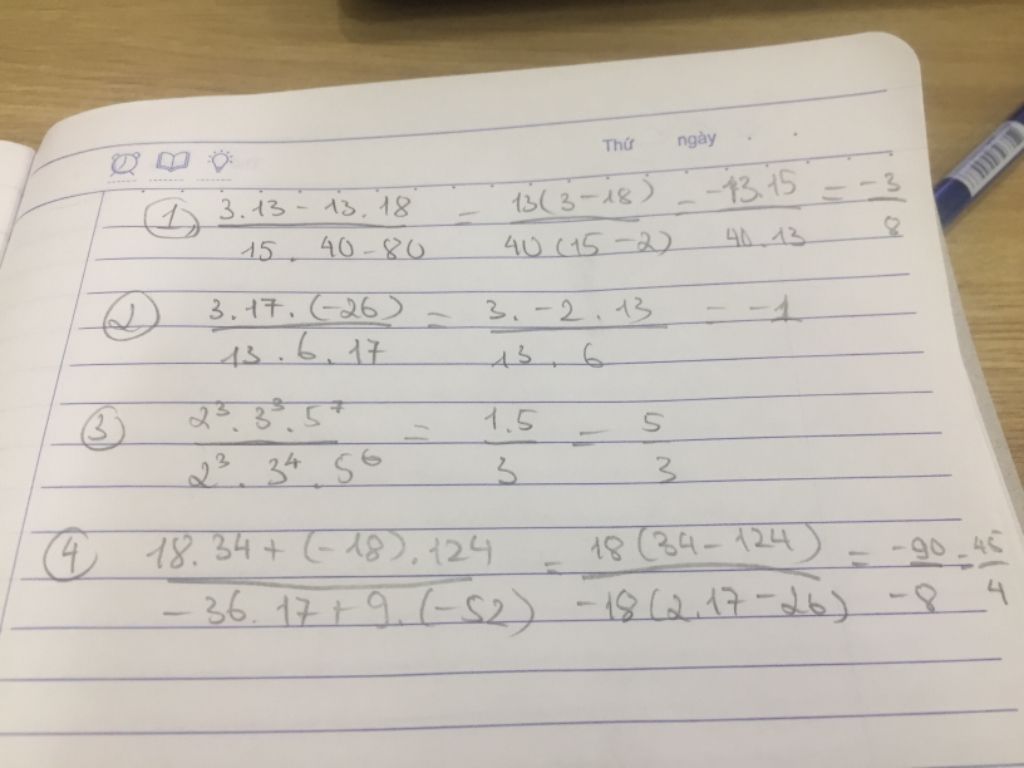 Thứ ngày
① 3.13 - 13.18 / 15.40 - 80 = 13(3 - 18) / 40(15 - 2) = -13.15 / 40.13 = -3 / 8
② 3.17.(-26) / 13.6.17 = 3.-2.13 / 13.6 = -1
③ 2³.3³.5⁷ / 2³.3⁴.5⁶ = 1.5 / 3 = 5 / 3
④ 18.34 + (-18).124 / -36.17 + 9.(-52) = 18(34 - 124) / -18(2.17 - 26) = -90 / -8 = 45 / 4